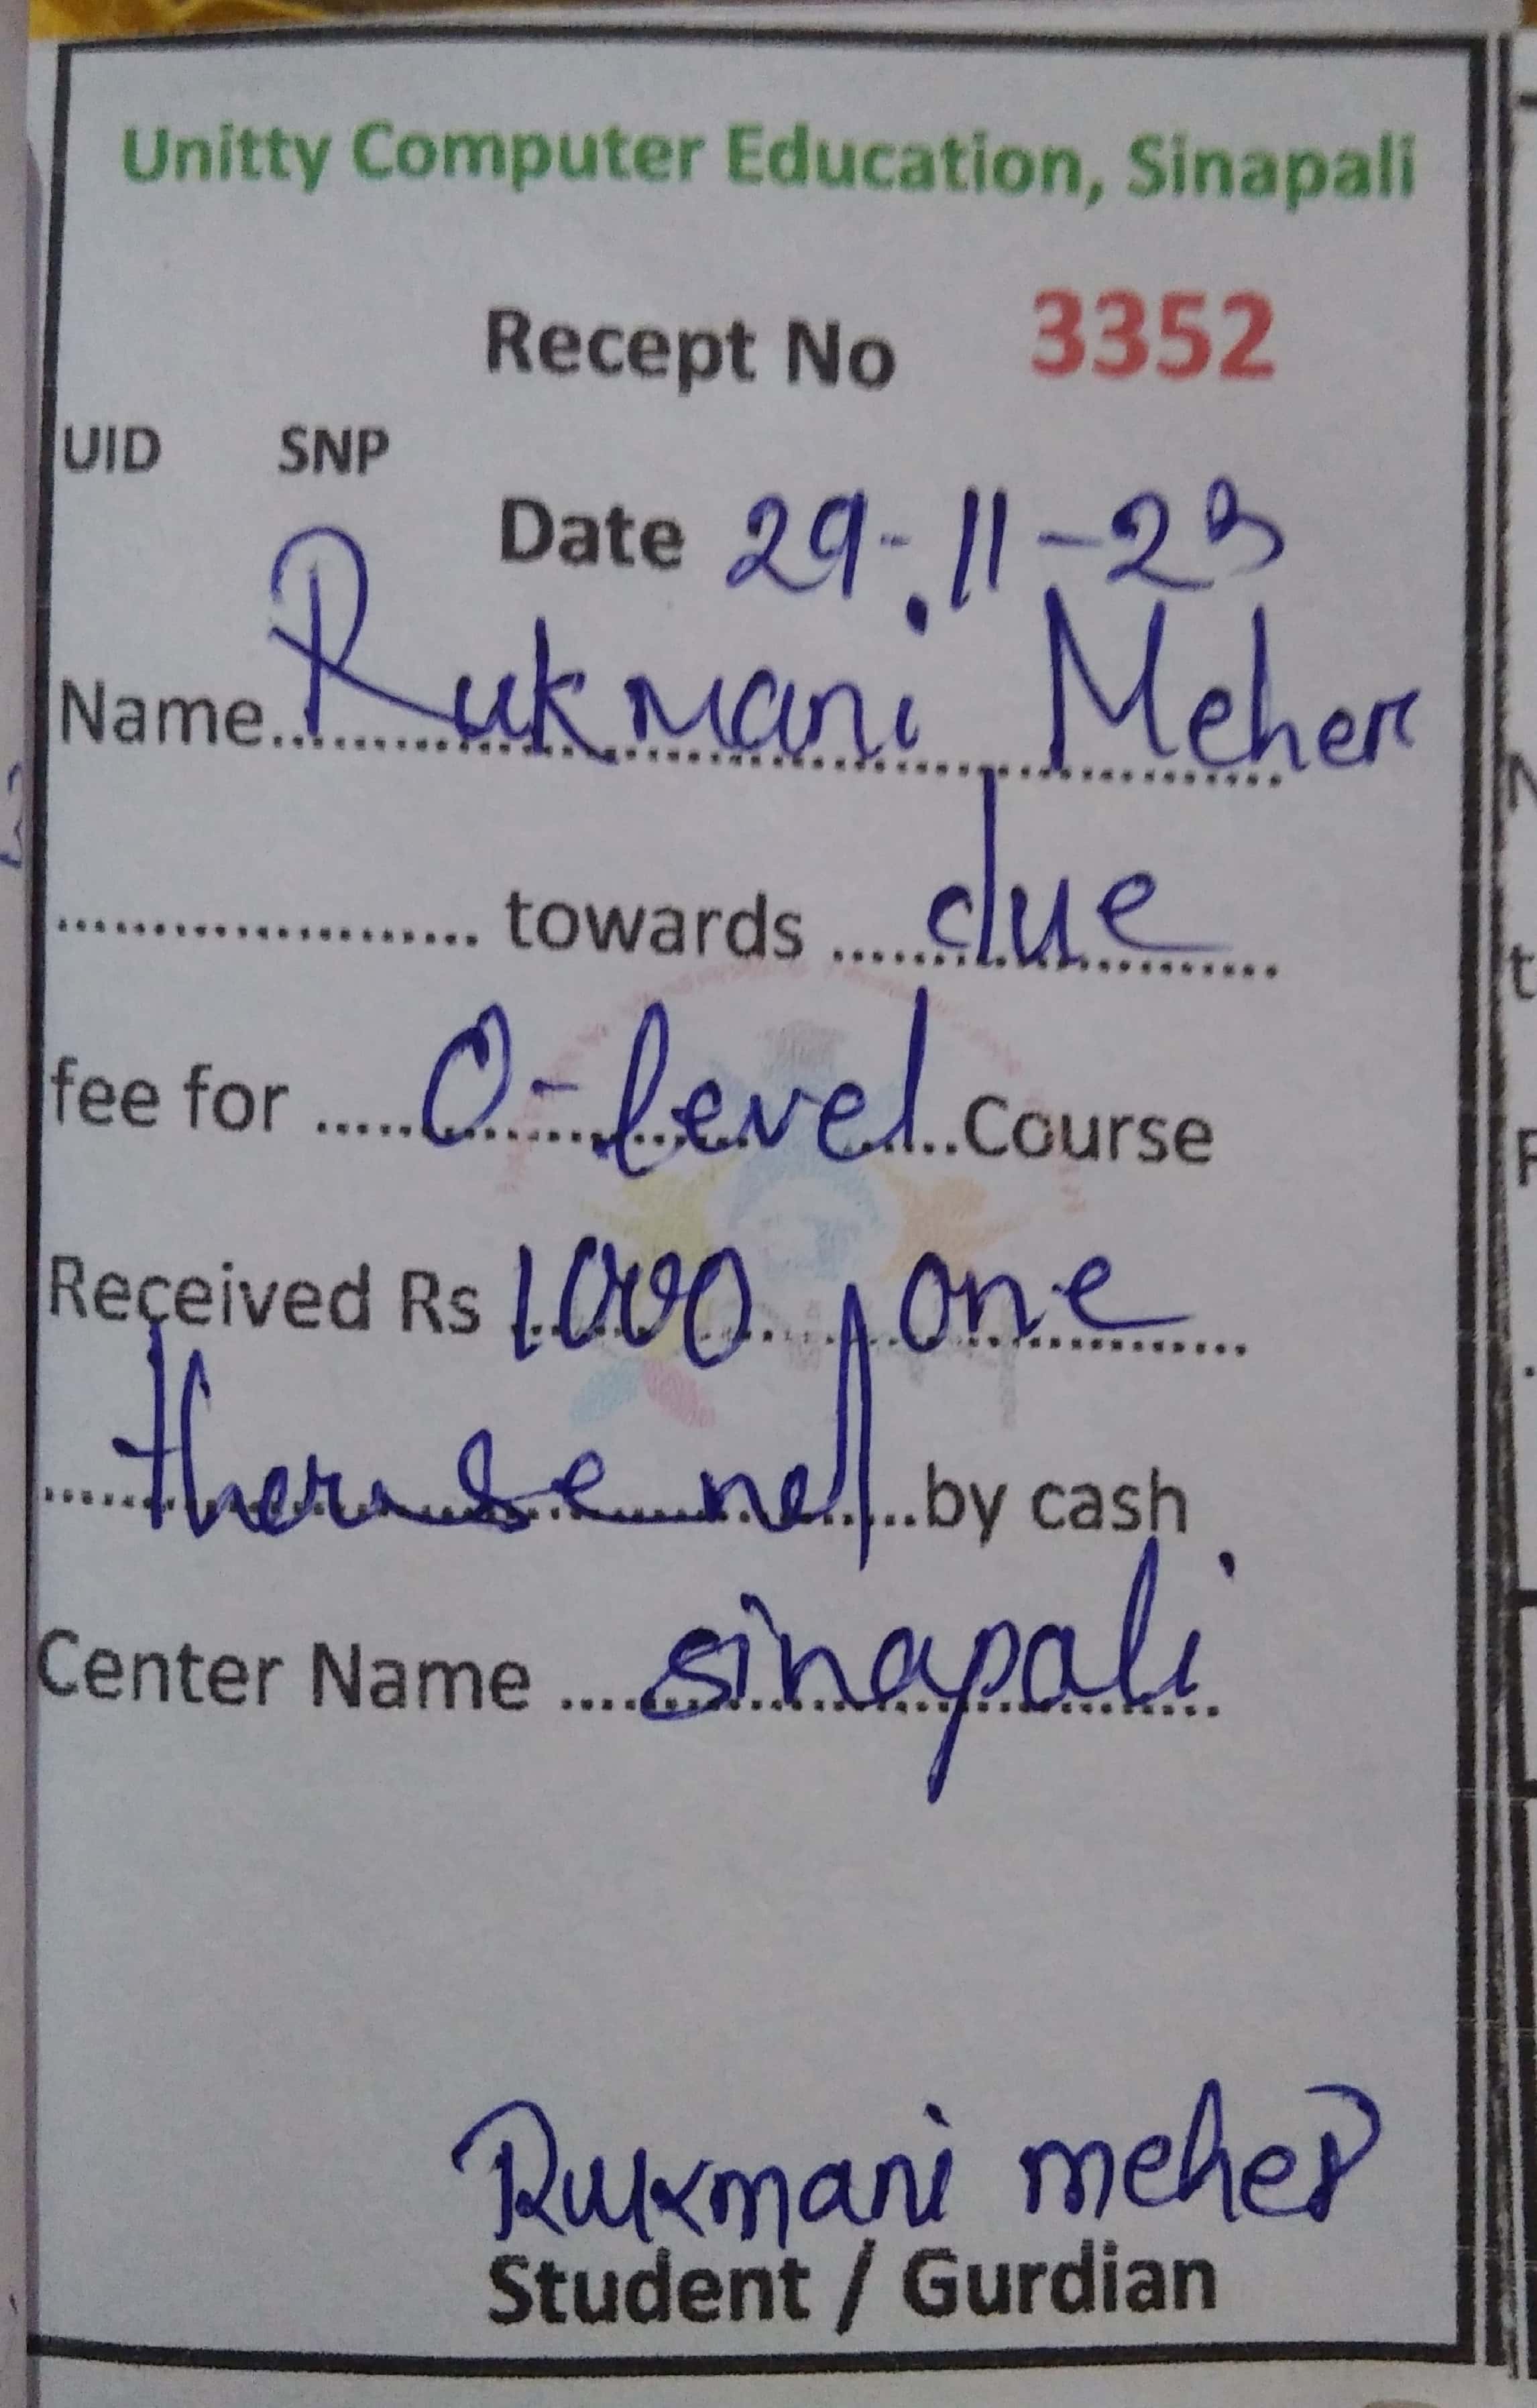 Unitty Computer Education, Sinapali
Recept No 3352
UID SNP
Date 29-11-23
Name Rukmani Meher
towards due
fee for O-level Course
Received Rs 1000 one
by cash
Center Name sinapali
Rukmani meher
Student / Gurdian